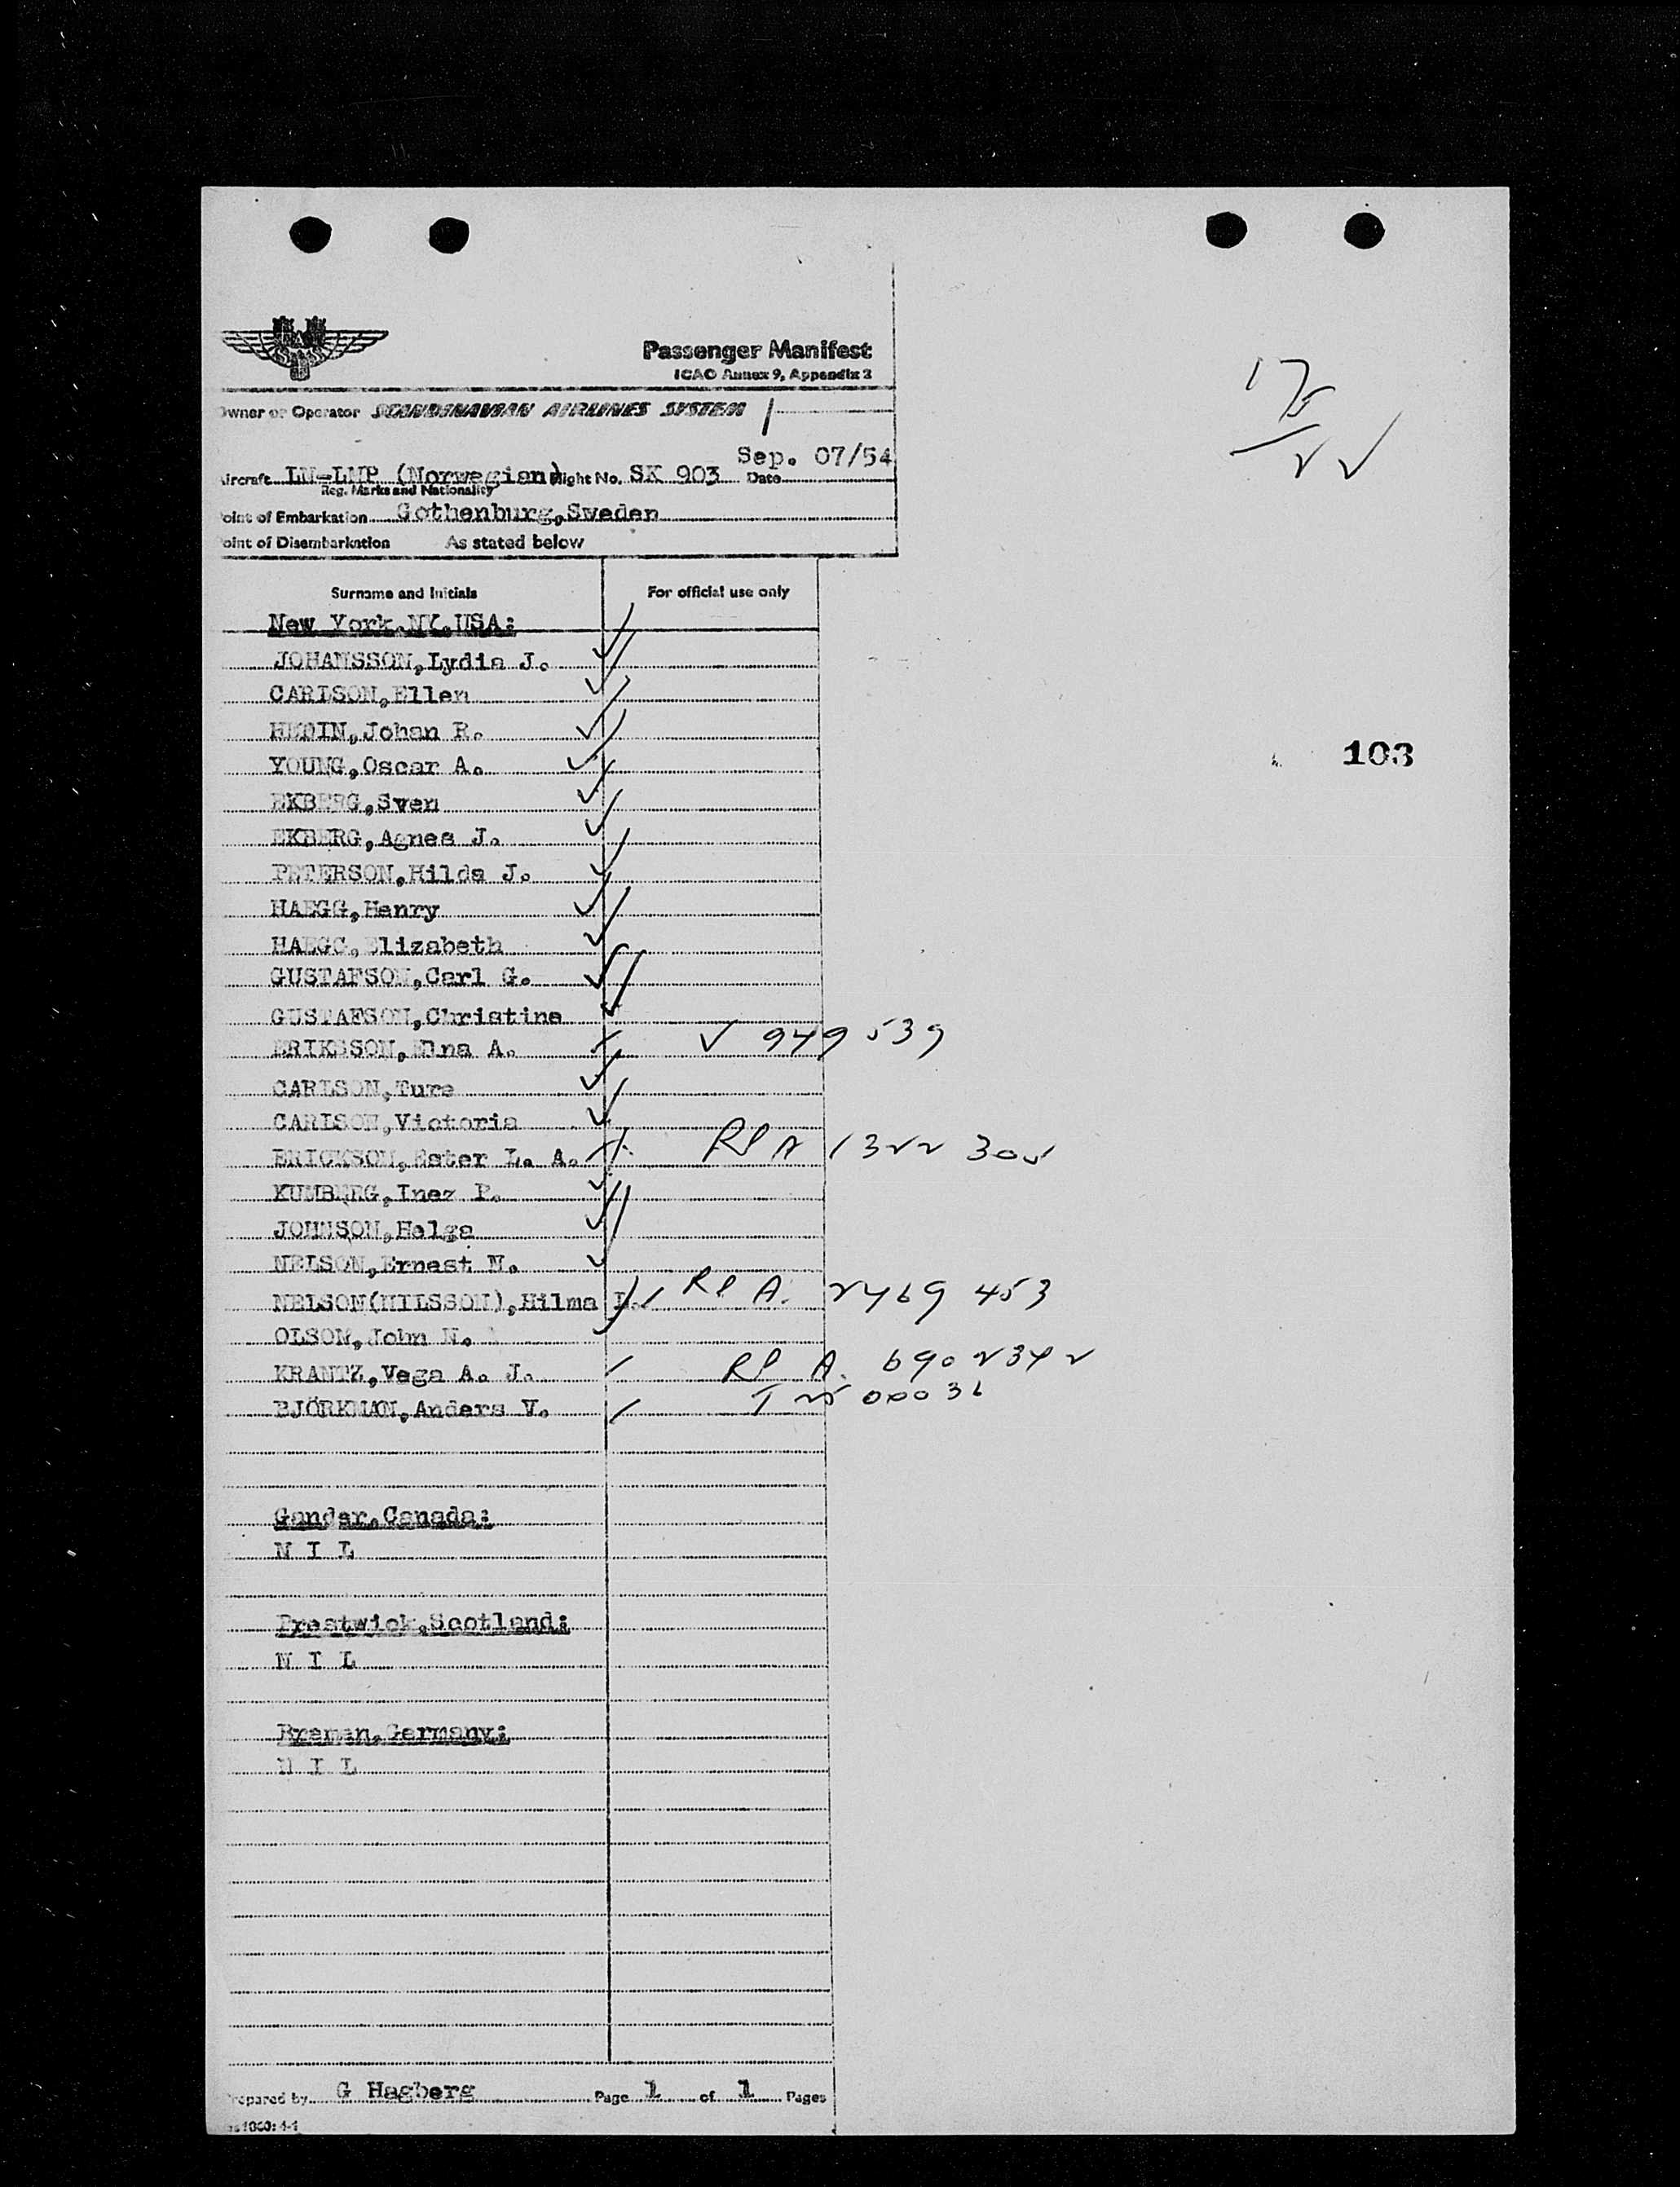 SAS
Passenger Manifest
ICAO Annex 9, Appendix 2
Owner or Operator SCANDINAVIAN AIRLINES SYSTEM
Sep. 07/54
Aircraft LN-LMP (Norwegian) Flight No. SK 903 Date
Reg. Marks and Nationality
Point of Embarkation Gothenburg,Sweden
Point of Disembarkation As stated below
Surname and Initials For official use only
New York,NY,USA:
JOHANSSON,Lydia J.
CARLSON,Ellen
HEDIN,Johan R.
YOUNG,Oscar A.
103
EKBERG,Sven
EKBERG,Agnes J.
PETERSON,Hilda J.
HAEGG,Henry
HAEGG,Elizabeth
GUSTAFSON,Carl G.
GUSTAFSON,Christine
ERIKSSON,Elna A. V 949 539
CARLSON,Ture
CARLSON,Victoria
ERICKSON,Ester L. A. RP A 1322 305
KUMBERG,Inez P.
JOHNSON,Helga
NELSON,Ernest N.
NELSON(NILSSON),Hilma L. RP A. 2469 453
OLSON,John N.
KRANTZ,Vega A. J. RP A. 6902342
BJÖRKMAN,Anders V.
Gander,Canada:
N I L
Prestwick,Scotland:
N I L
Bremen,Germany:
N I L
Prepared by G Hagberg Page 1 of 1 Pages